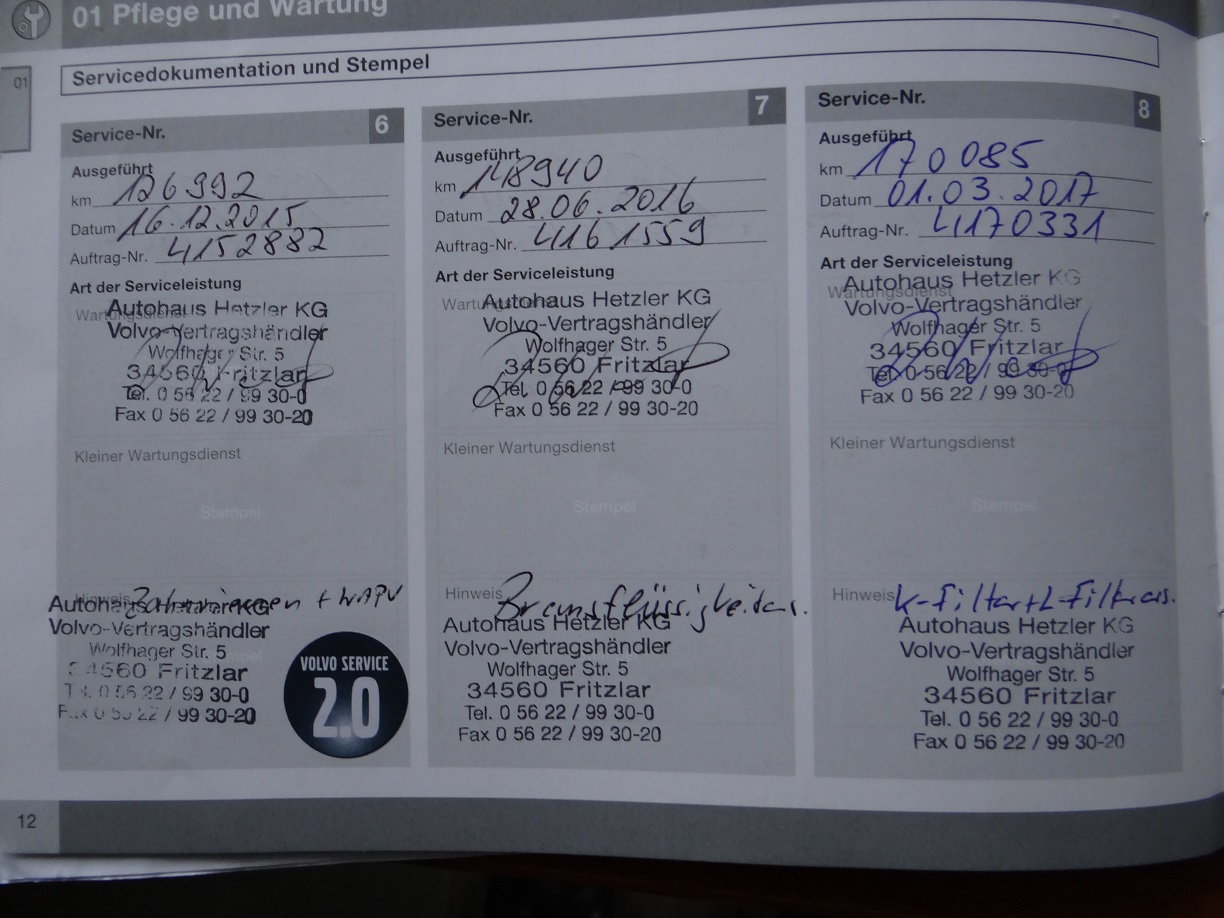 01 Pflege und Wartung
01
Servicedokumentation und Stempel
Service-Nr. 6
Ausgeführt
km 126992
Datum 16.12.2015
Auftrag-Nr. 4152882
Art der Serviceleistung
Wartungsdienst
Autohaus Hetzler KG
Volvo-Vertragshändler
Wolfhager Str. 5
34560 Fritzlar
Tel. 0 56 22 / 99 30-0
Fax 0 56 22 / 99 30-20
Kleiner Wartungsdienst
Stempel
Hinweis Zahnriemen + WAPU
Autohaus Hetzler KG
Volvo-Vertragshändler
Wolfhager Str. 5
34560 Fritzlar
Tel. 0 56 22 / 99 30-0
Fax 0 56 22 / 99 30-20
VOLVO SERVICE
2.0
Service-Nr. 7
Ausgeführt
km 148940
Datum 28.06.2016
Auftrag-Nr. 4161559
Art der Serviceleistung
Wartungsdienst
Autohaus Hetzler KG
Volvo-Vertragshändler
Wolfhager Str. 5
34560 Fritzlar
Tel. 0 56 22 / 99 30-0
Fax 0 56 22 / 99 30-20
Kleiner Wartungsdienst
Stempel
Hinweis Bremsflüssigkeit
Autohaus Hetzler KG
Volvo-Vertragshändler
Wolfhager Str. 5
34560 Fritzlar
Tel. 0 56 22 / 99 30-0
Fax 0 56 22 / 99 30-20
Service-Nr. 8
Ausgeführt
km 170085
Datum 01.03.2017
Auftrag-Nr. 4170331
Art der Serviceleistung
Wartungsdienst
Autohaus Hetzler KG
Volvo-Vertragshändler
Wolfhager Str. 5
34560 Fritzlar
Tel. 0 56 22 / 99 30-0
Fax 0 56 22 / 99 30-20
Kleiner Wartungsdienst
Stempel
Hinweis K-Filter+L-Filter
Autohaus Hetzler KG
Volvo-Vertragshändler
Wolfhager Str. 5
34560 Fritzlar
Tel. 0 56 22 / 99 30-0
Fax 0 56 22 / 99 30-20
12